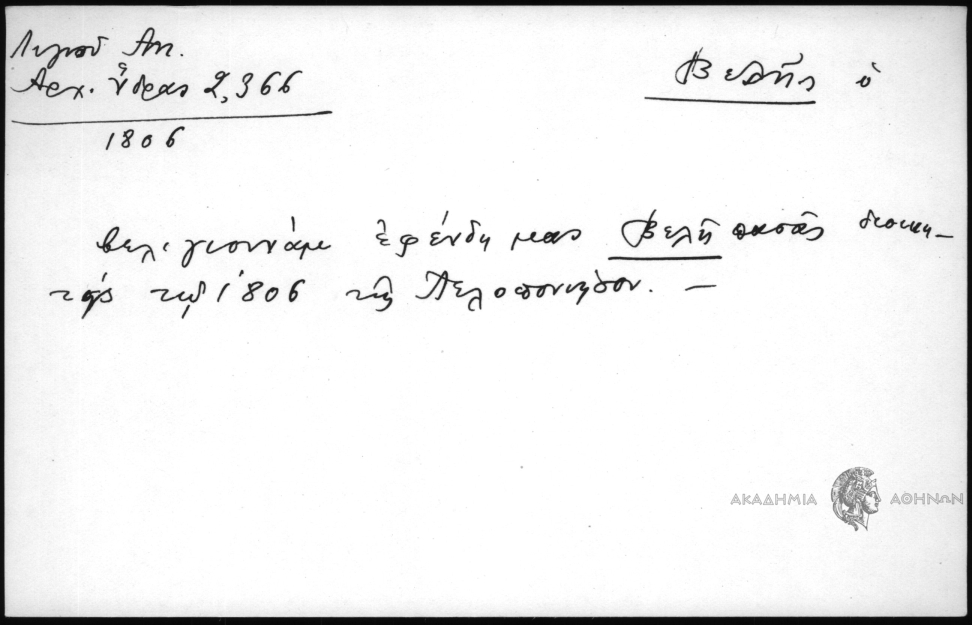 Λιγνοῦ Ἀντ.
Ἀρχ. Ὕδρας 2,366
1806
Βελῆς ὁ
βελιγιουνάμ ἐφένδη μας Βελῆ πασᾶς διοικη-
τὴς τῷ 1806 τῆς Πελοποννήσου. —
ΑΚΑΔΗΜΙΑ ΑΘΗΝΩΝ